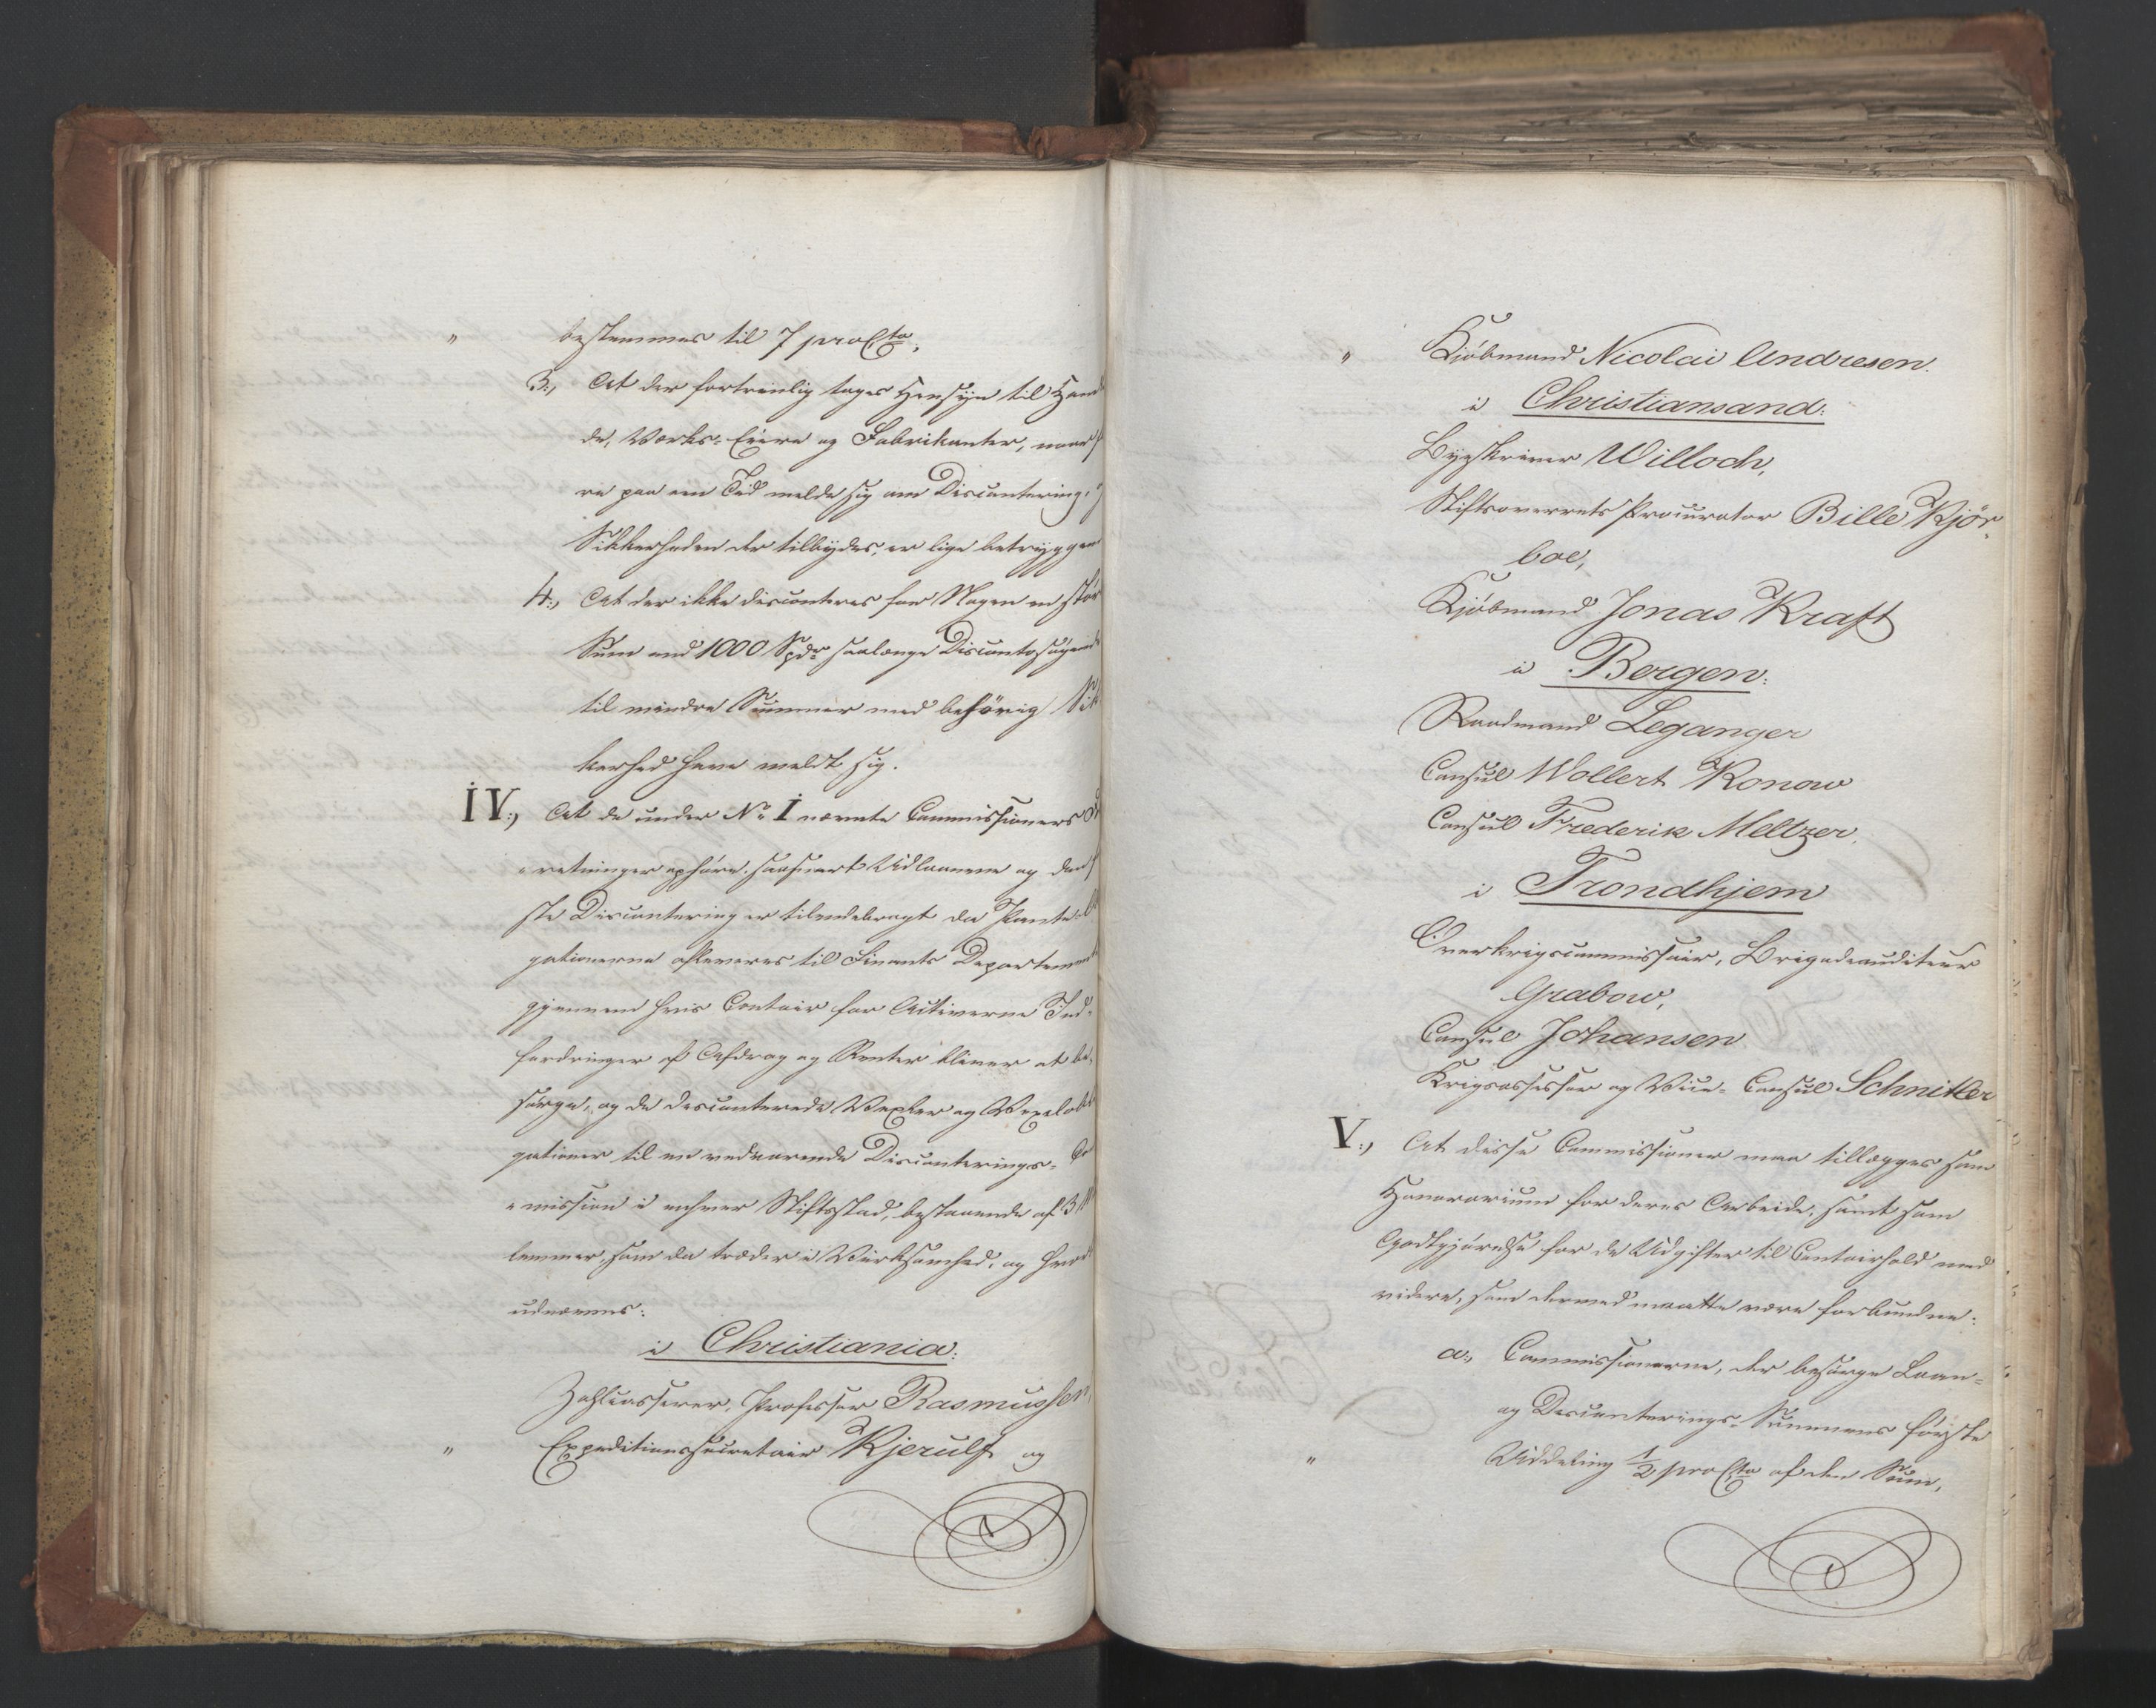 " bestemmes til 7 pro Cto,
3., At der fortrinlig tages Hensyn til Hand
de, Værks-Eiere og Fabrikanter, naar
re paa een Tid melde sig om Discontering,
Sikkerheden der tilbydes, er lige betryggen
4., At der ikke disconteres for Nogen en stør
Sum end 1000 Spdr saalænge Discontosøgende
til mindre Summer med behørig Sik
kerhed have meldt sig.
IV., At de under No I nævnte Commissioners
retninger ophøre, saasnart Udlaanene og den
ste Discontering er tilendebragt da Pante
gationerne afleveres til Finants Departement
gjennem hvis Contoir for Activerne Ind-
fordringer af Afdrag og Renter bliver at be-
sørge, og de disconterede Vexler og Vexelobli
gationer til en vedvarende Disconterings-Co
mission i enhver Stiftsstad, bestaaende af 3
lemmer, som da træder i Virksomhed, og hvor
udnævnes:
i Christiania:
Zahlcasserer, Professor Rasmussen,
" Expeditionssecretair Kjerulf og
" Kjøbmand Nicolai Andresen.
i Christiansand:
Byskriver Willoch,
Stiftsoverrets Procurator Bille Kjør-
boe,
Kjøbmand Jonas Kraft
i Bergen:
Raadmand Leganger
Consul Wollert Konow
Consul Frederik Meltzer,
i Trondhjem
Overkrigscommissair, Brigadeauditeur
Grabow,
Consul Johansen
Krigsassessor og Vice-Consul Schnitler
V., At disse Commissioner maa tillægges som
Honorarium for deres Arbeide, samt som
Godtgjørelse for de Udgifter til Contoirhold med
videre, som dermed maatte være forbundne:
a., Commissionerne, der besørge Laan-
og Disconterings-Summens første
" Uddeling 1/2 pro Cto af den Sum,